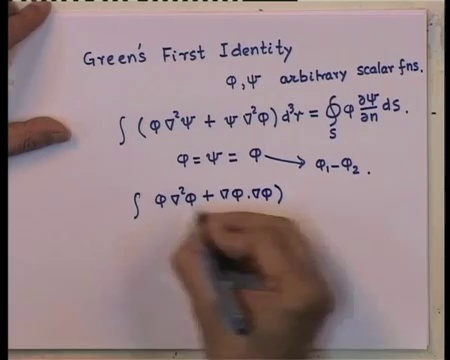 Green's First Identity
φ, ψ arbitrary scalar fns.
∫ (φ ∇²ψ + ψ ∇²φ) d³r = ∮_S φ ∂ψ/∂n dS.
φ = ψ = φ → φ₁ - φ₂.
∫ φ ∇²φ + ∇φ.∇φ)